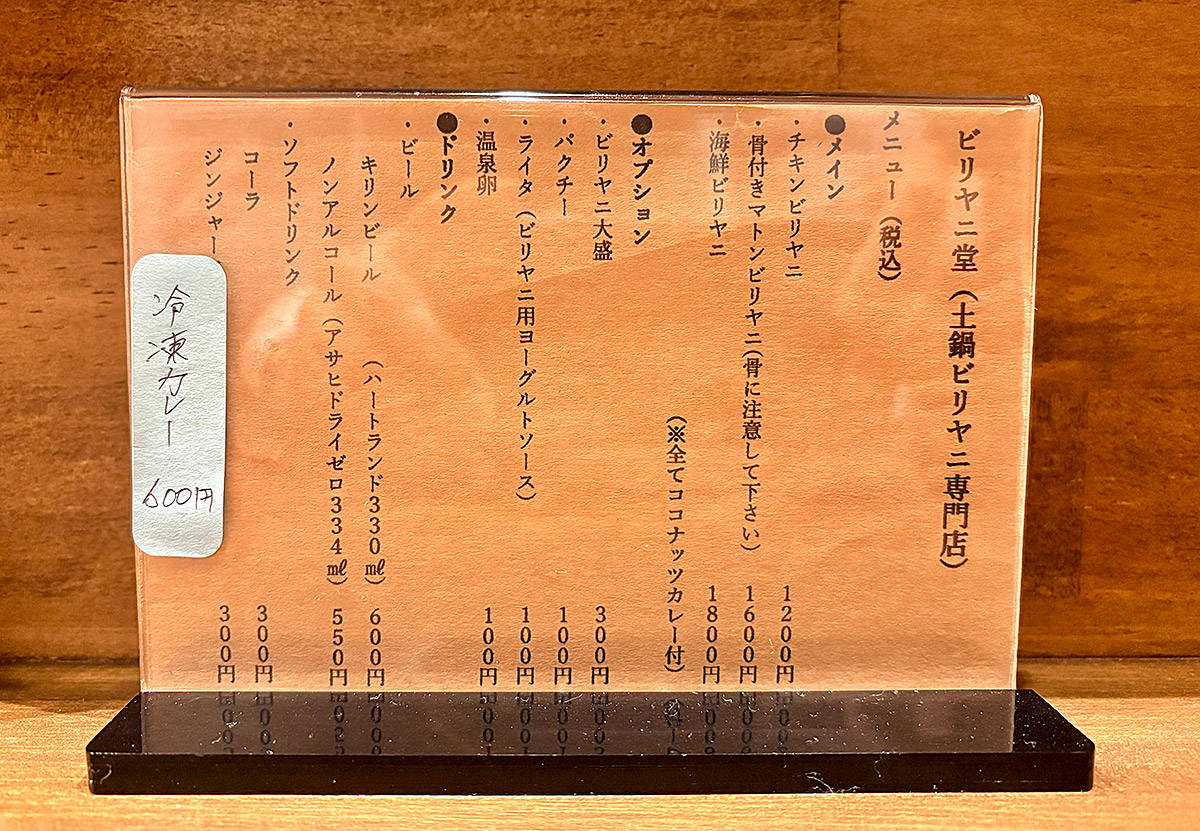 ビリヤニ堂（土鍋ビリヤニ専門店）
メニュー（税込）
●メイン
・チキンビリヤニ 1200円
・骨付きマトンビリヤニ（骨に注意して下さい） 1600円
・海鮮ビリヤニ 1800円
（※全てココナッツカレー付）
●オプション
・ビリヤニ大盛 300円
・パクチー 100円
・ライタ（ビリヤニ用ヨーグルトソース） 100円
・温泉卵 100円
●ドリンク
・ビール
キリンビール （ハートランド330㎖） 600円
ノンアルコール（アサヒドライゼロ334㎖） 550円
・ソフトドリンク
コーラ 300円
ジンジャー 300円
冷凍カレー 600円